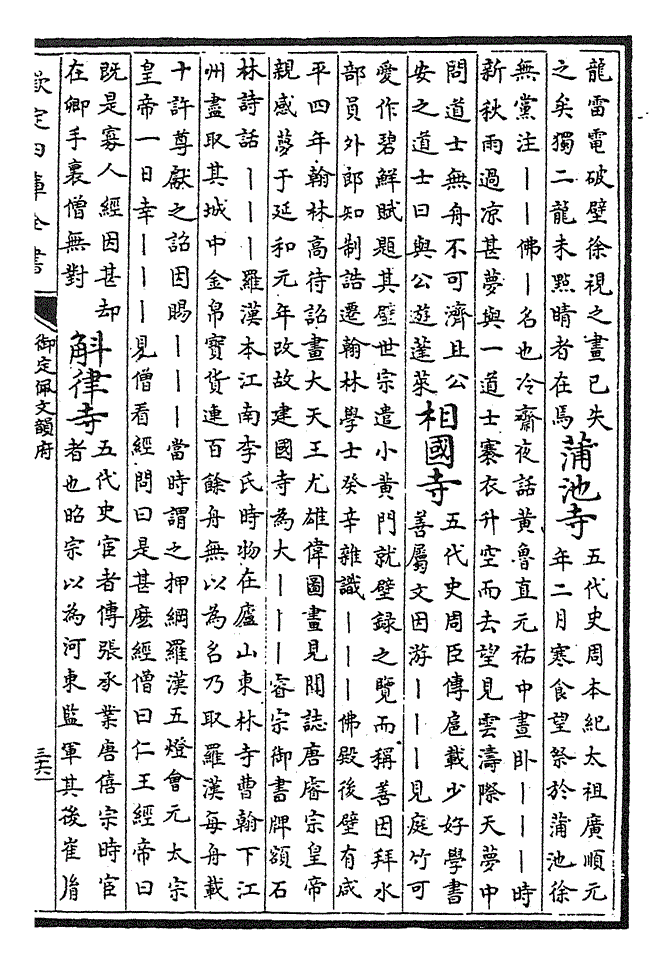 龍雷電破壁徐視之畫已失
之矣獨二龍未點睛者在焉
蒲池寺
五代史周本紀太祖廣順元
年二月寒食望祭於蒲池徐
無黨注丨丨佛丨名也冷齋夜話黃魯直元祐中晝卧丨丨丨時
新秋雨過凉甚夢與一道士褰衣升空而去望見雲濤際天夢中
問道士無舟不可濟且公
安之道士曰與公遊蓬萊
相國寺
五代史周臣傳扈載少好學書
善屬文因游丨丨丨見庭竹可
愛作碧鮮賦題其壁世宗遣小黃門就壁錄之覽而稱善因拜水
部員外郎知制誥遷翰林學士癸辛雜識丨丨丨佛殿後壁有咸
平四年翰林高待詔畫大天王尤雄偉圖畫見聞誌唐睿宗皇帝
親感夢于延和元年改故建國寺為大丨丨丨睿宗御書牌額石
林詩話丨丨丨羅漢本江南李氏時物在廬山東林寺曹翰下江
州盡取其城中金帛寳貨連百餘舟無以為名乃取羅漢每舟載
十許尊獻之詔因賜丨丨丨當時謂之押綱羅漢五燈會元太宗
皇帝一日幸丨丨丨見僧看經問曰是甚麽經僧曰仁王經帝曰
既是寡人經因甚却
在卿手裏僧無對
斛律寺
五代史宦者傳張承業唐僖宗時宦
者也昭宗以為河東監軍其後崔胤
欽定四庫全書
御定佩文韻府
三六